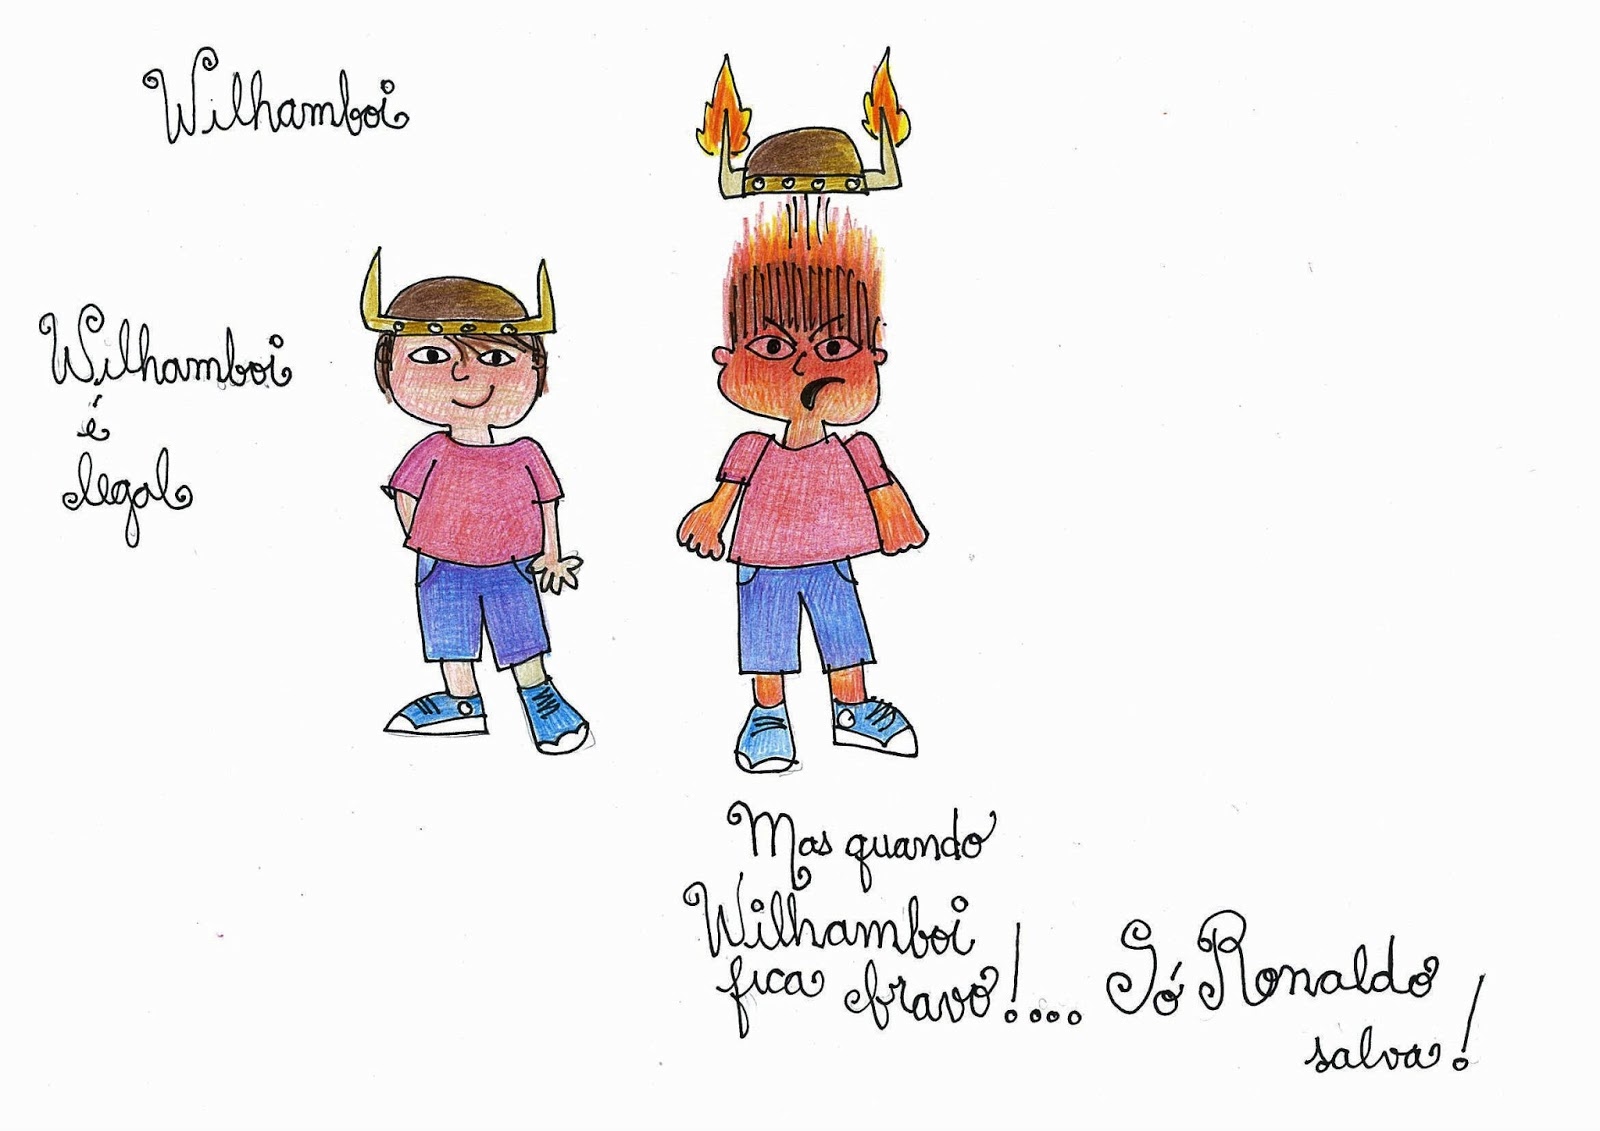 Wilhamboi
Wilhamboi
é
legal
Mas quando
Wilhamboi
fica bravo!....
Só Ronaldo
salva!